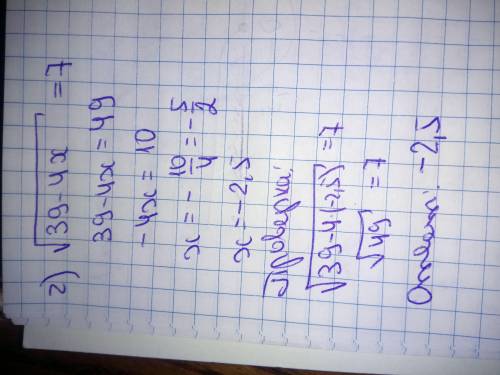 2) √39-4x = 7
39-4x = 49
-4x = 10
x = - 10/4 = - 5/2
x = -2,5
Проверка:
√39-4(-2,5) = 7
√49 = 7
Ответ: -2,5